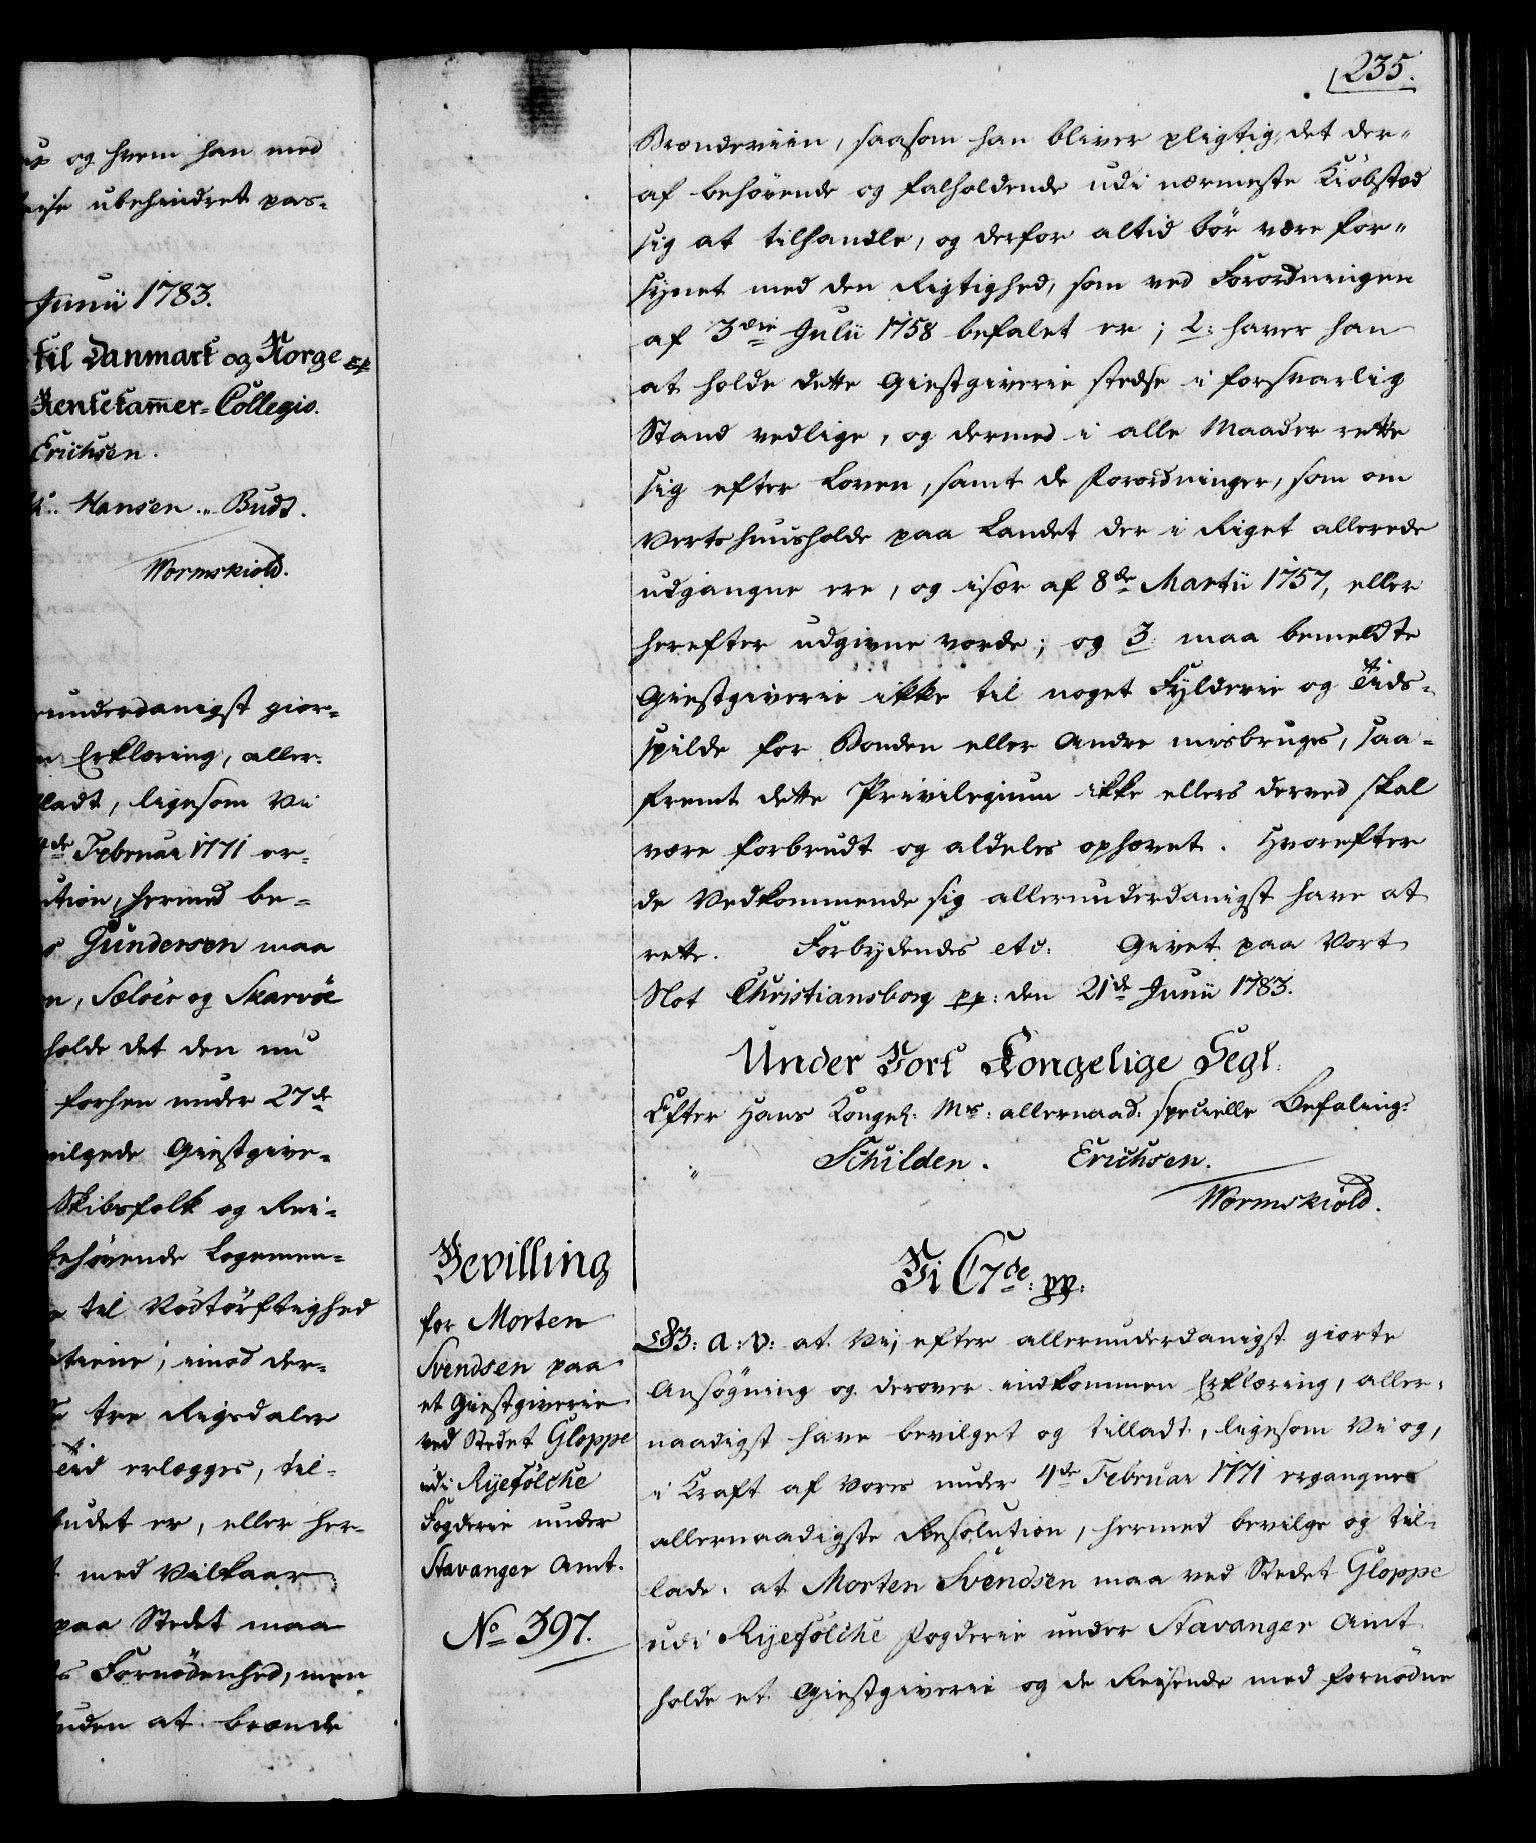 235.
og hvem han med
ubehindret pas-
Junii 1783.
til Danmark og Norge
Rentekam̅er-Collegio.
Erichsen.
Hansen. Budt.
Wormskiold.
underdanigst gior-
Erklæring, aller-
ladt, ligesom Vi
4de Februar 1771 er-
ution, hermed be-
Gundersen maa
n, Seløer og Skarvöe
holde det den nu
forhen under 27de
vilgede Giestgive-
Skibsfolk og Rei-
behövende Logemen-
til Nödtörftighed
imod der-
tre Rigsdaler
Tid erlægges, til-
budet er, eller her-
med Vilkaar
paa Stedet maa
Fornödenhed, men
uden at brænde
Brændeviin, saasom han bliver pligtig, det der-
af behövende og falholdende udi nærmeste Kiöbsted
sig at tilhandle, og derfor altid bör være for-
synet med den Rigtighed, som ved Forordningen
af 3die Julii 1758 befalet er; 2: haver han
at holde dette Giestgiverie stedse i forsvarlig
Stand vedlige, og dermed i alle Maader rette
sig efter Loven, samt de Forordninger, som om
Vertshuusholde paa Landet der i Riget allerede
udgangne ere, og især af 8de Martii 1757, eller
herefter udgivne vorde; og 3. maa bemeldte
Giestgiverie ikke til noget Fylderie og Tids-
spilde for Bonden eller Andre misbruges, saa-
fremt dette Privilegium ikke ellers derved skal
være forbrudt og aldeles ophævet. Hvorefter
de Vedkommende sig allerunderdanigst have at
rette. Forbydendes etc: Givet paa Vort
Slot Christiansborg pp: den 21de Junii 1783.
Under Vort Kongelige Segl.
Efter Hans Kongel: Ms: allernaad: specielle Befaling:
Schilden. Erichsen.
Wormskiold.
Bevilling
for Morten
Svendsen paa
et Giestgiverie
ved Stedet Gloppe
udi Ryefölche
Fogderie under
Stavanger Amt.
No 397.
Vi C7de: pp:
G: A: V: at Vi, efter allerunderdanigst giorte
Ansögning og derover indkommen Erklæring, aller-
naadigst have bevilget og tilladt, ligesom Vi og,
i Kraft af Vores under 4de Februar 1771 ergangne
allernaadigste Resolution, hermed bevilge og til-
lade: at Morten Svendsen maa ved Stedet Gloppe
udi Ryefölche Fogderie under Stavanger Amt
holde et Giestgiverie og de Reisende med fornödne